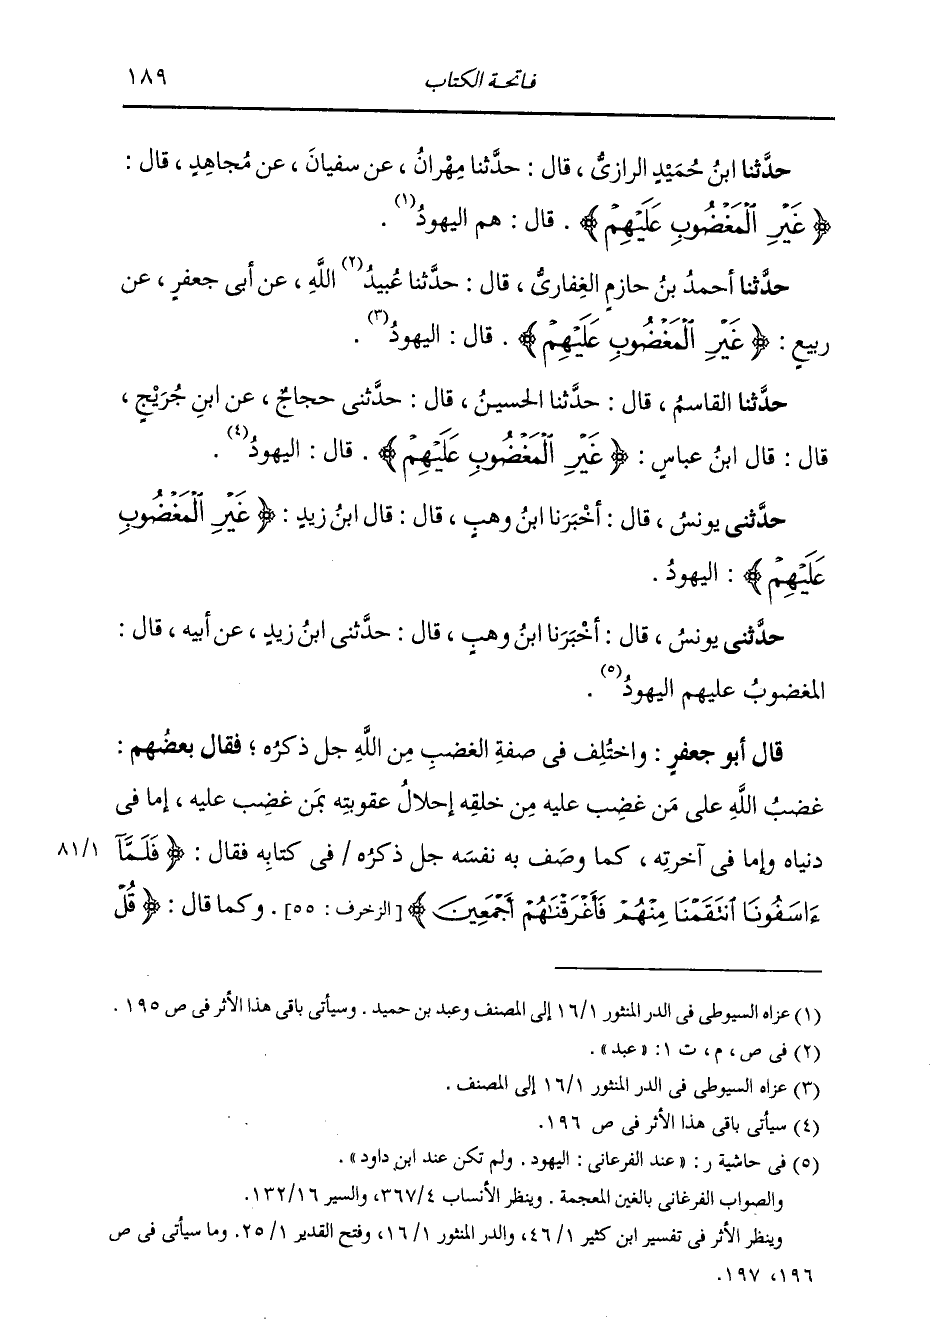 فاتحة الكتاب ١٨٩
حدَّثنا ابنُ حُمَيْدٍ الرازىُّ ، قال : حدَّثنا مِهْرانُ ، عن سفيانَ ، عن مُجاهِدٍ ، قال :
﴿ غَيْرِ الْمَغْضُوبِ عَلَيْهِمْ ﴾ . قال : هم اليهودُ(١) .
حدَّثنا أحمدُ بنُ حازمٍ الغِفارىُّ ، قال : حدَّثنا عُبيدُ(٢) اللَّهِ ، عن أبى جعفرٍ ، عن
ربيعٍ : ﴿ غَيْرِ الْمَغْضُوبِ عَلَيْهِمْ ﴾ . قال : اليهودُ(٣) .
حدَّثنا القاسمُ ، قال : حدَّثنا الحسينُ ، قال : حدَّثنى حجاجٌ ، عن ابنِ جُرَيْجٍ ،
قال : قال ابنُ عباسٍ : ﴿ غَيْرِ الْمَغْضُوبِ عَلَيْهِمْ ﴾ . قال : اليهودُ(٤) .
حدَّثنى يونسُ ، قال : أخْبَرَنا ابنُ وهبٍ ، قال : قال ابنُ زيدٍ : ﴿ غَيْرِ الْمَغْضُوبِ
عَلَيْهِمْ ﴾ : اليهودُ .
حدَّثنى يونسُ ، قال : أخْبَرَنا ابنُ وهبٍ ، قال : حدَّثنى ابنُ زيدٍ ، عن أبيه ، قال :
المغضوبُ عليهم اليهودُ(٥) .
قال أبو جعفرٍ : واختُلِف فى صفةِ الغضبِ مِن اللَّهِ جل ذكرُه ؛ فقال بعضُهم :
غضبُ اللَّهِ على مَن غضِب عليه مِن خلقِه إحلالُ عقوبتِه بمَن غضِب عليه ، إما فى
دنياه وإما فى آخرتِه ، كما وصَف به نفسَه جل ذكرُه / فى كتابِه فقال : ﴿ فَلَمَّآ ٨١/١
ءَاسَفُونَا ٱنتَقَمْنَا مِنْهُمْ فَأَغْرَقْنَٰهُمْ أَجْمَعِينَ ﴾ [الزخرف : ٥٥] . وكما قال : ﴿ قُلْ
(١) عزاه السيوطى فى الدر المنثور ١٦/١ إلى المصنف وعبد بن حميد . وسيأتى باقى هذا الأثر فى ص ١٩٥ .
(٢) فى ص ، م ، ت ١: « عبد » .
(٣) عزاه السيوطى فى الدر المنثور ١٦/١ إلى المصنف .
(٤) سيأتى باقى هذا الأثر فى ص ١٩٦.
(٥) فى حاشية ر : « عند الفرعانى : اليهود . ولم تكن عند ابن داود » .
والصواب الفرغانى بالغين المعجمة . وينظر الأنساب ٣٦٧/٤، والسير ١٣٢/١٦.
وينظر الأثر فى تفسير ابن كثير ٤٦/١، والدر المنثور ١٦/١، وفتح القدير ٢٥/١. وما سيأتى فى ص
١٩٦، ١٩٧.